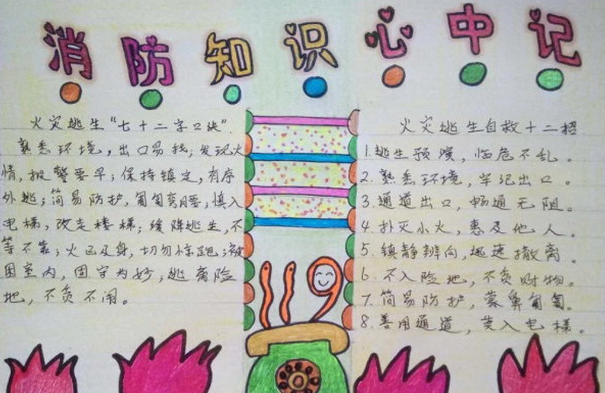 消防知识心中记
火灾逃生“七十二字口诀”.
熟悉环境，出口易找；发现火
情，报警要早；保持镇定，有序
外逃；简易防护，匍匐弯腰；慎入
电梯，改走楼梯；缓降逃生，不
等不靠；火已及身，切勿惊跑；被
困室内，固守为妙；逃离险
地，不贪不闹。
119
火灾逃生自救十二招
1.逃生预演，临危不乱。
2.熟悉环境，牢记出口。
3.通道出口，畅通无阻。
4.扑灭小火，惠及他人。
5.镇静辨向，迅速撤离。
6.不入险地，不贪财物。
7.简易防护，蒙鼻匍匐。
8.善用通道，莫入电梯。